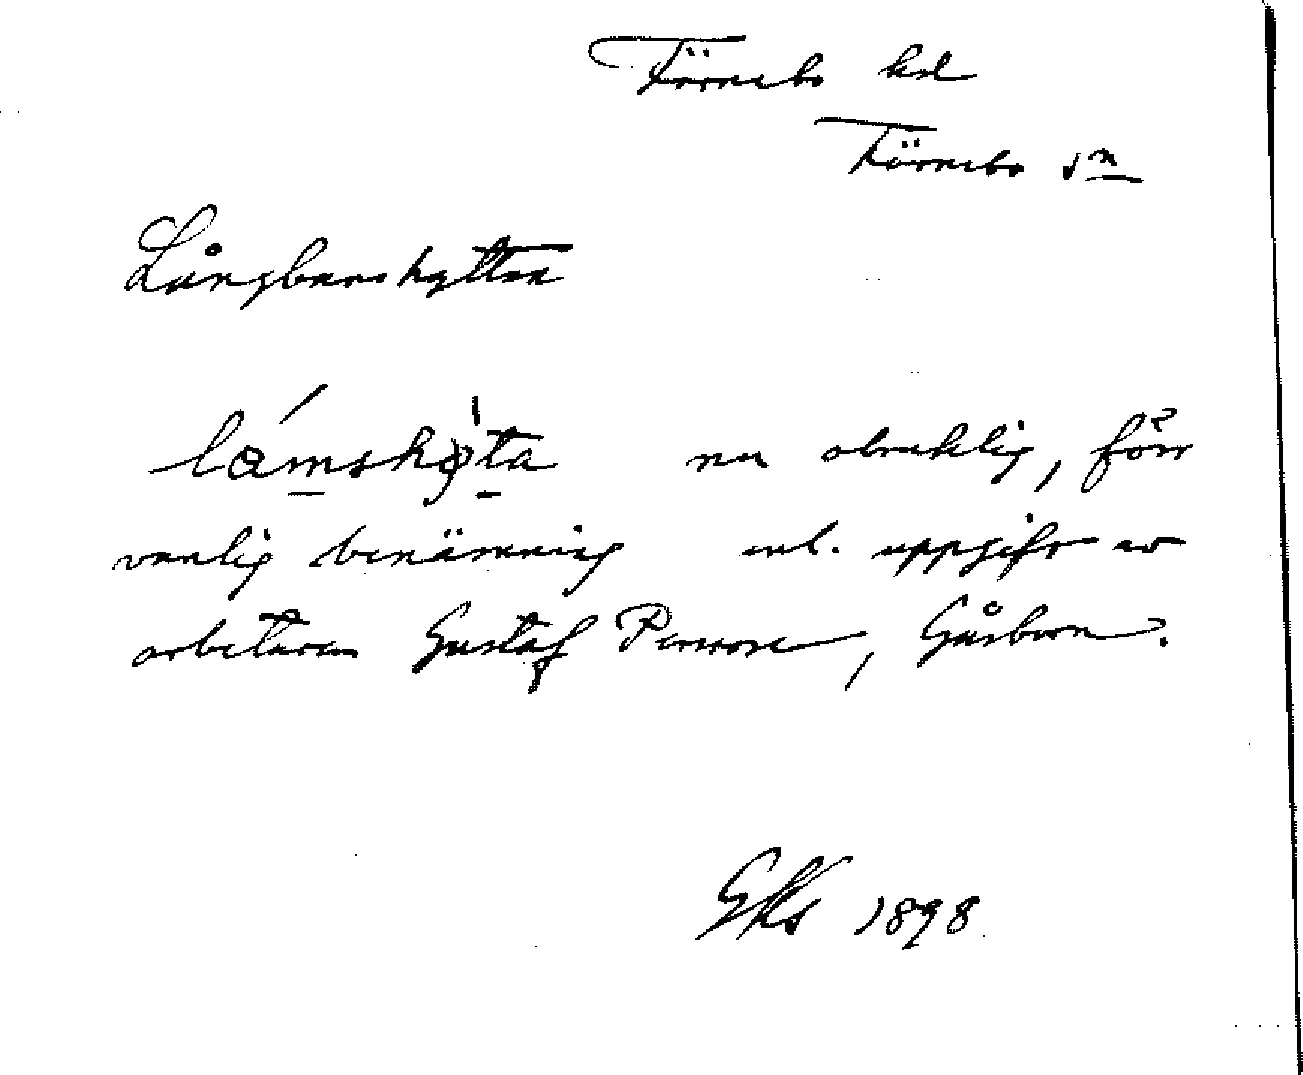 Färnebo hd
Färnebo sn
Långbanshyttan
lámshy̍ta nu obruklig, förr
vanlig benämning enl. uppgift av
arbetaren Gustaf Persson, Gåsborn.
1898